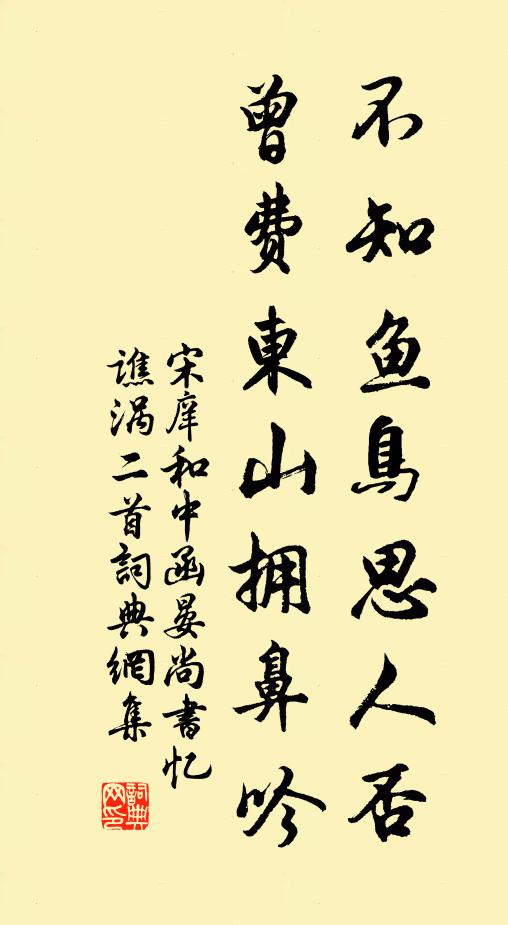 不知鱼鳥思人否
曾费東山拥鼻吟
宋庠和中函晏尚書忆
譙涡二首詞典網集
詞典
网印